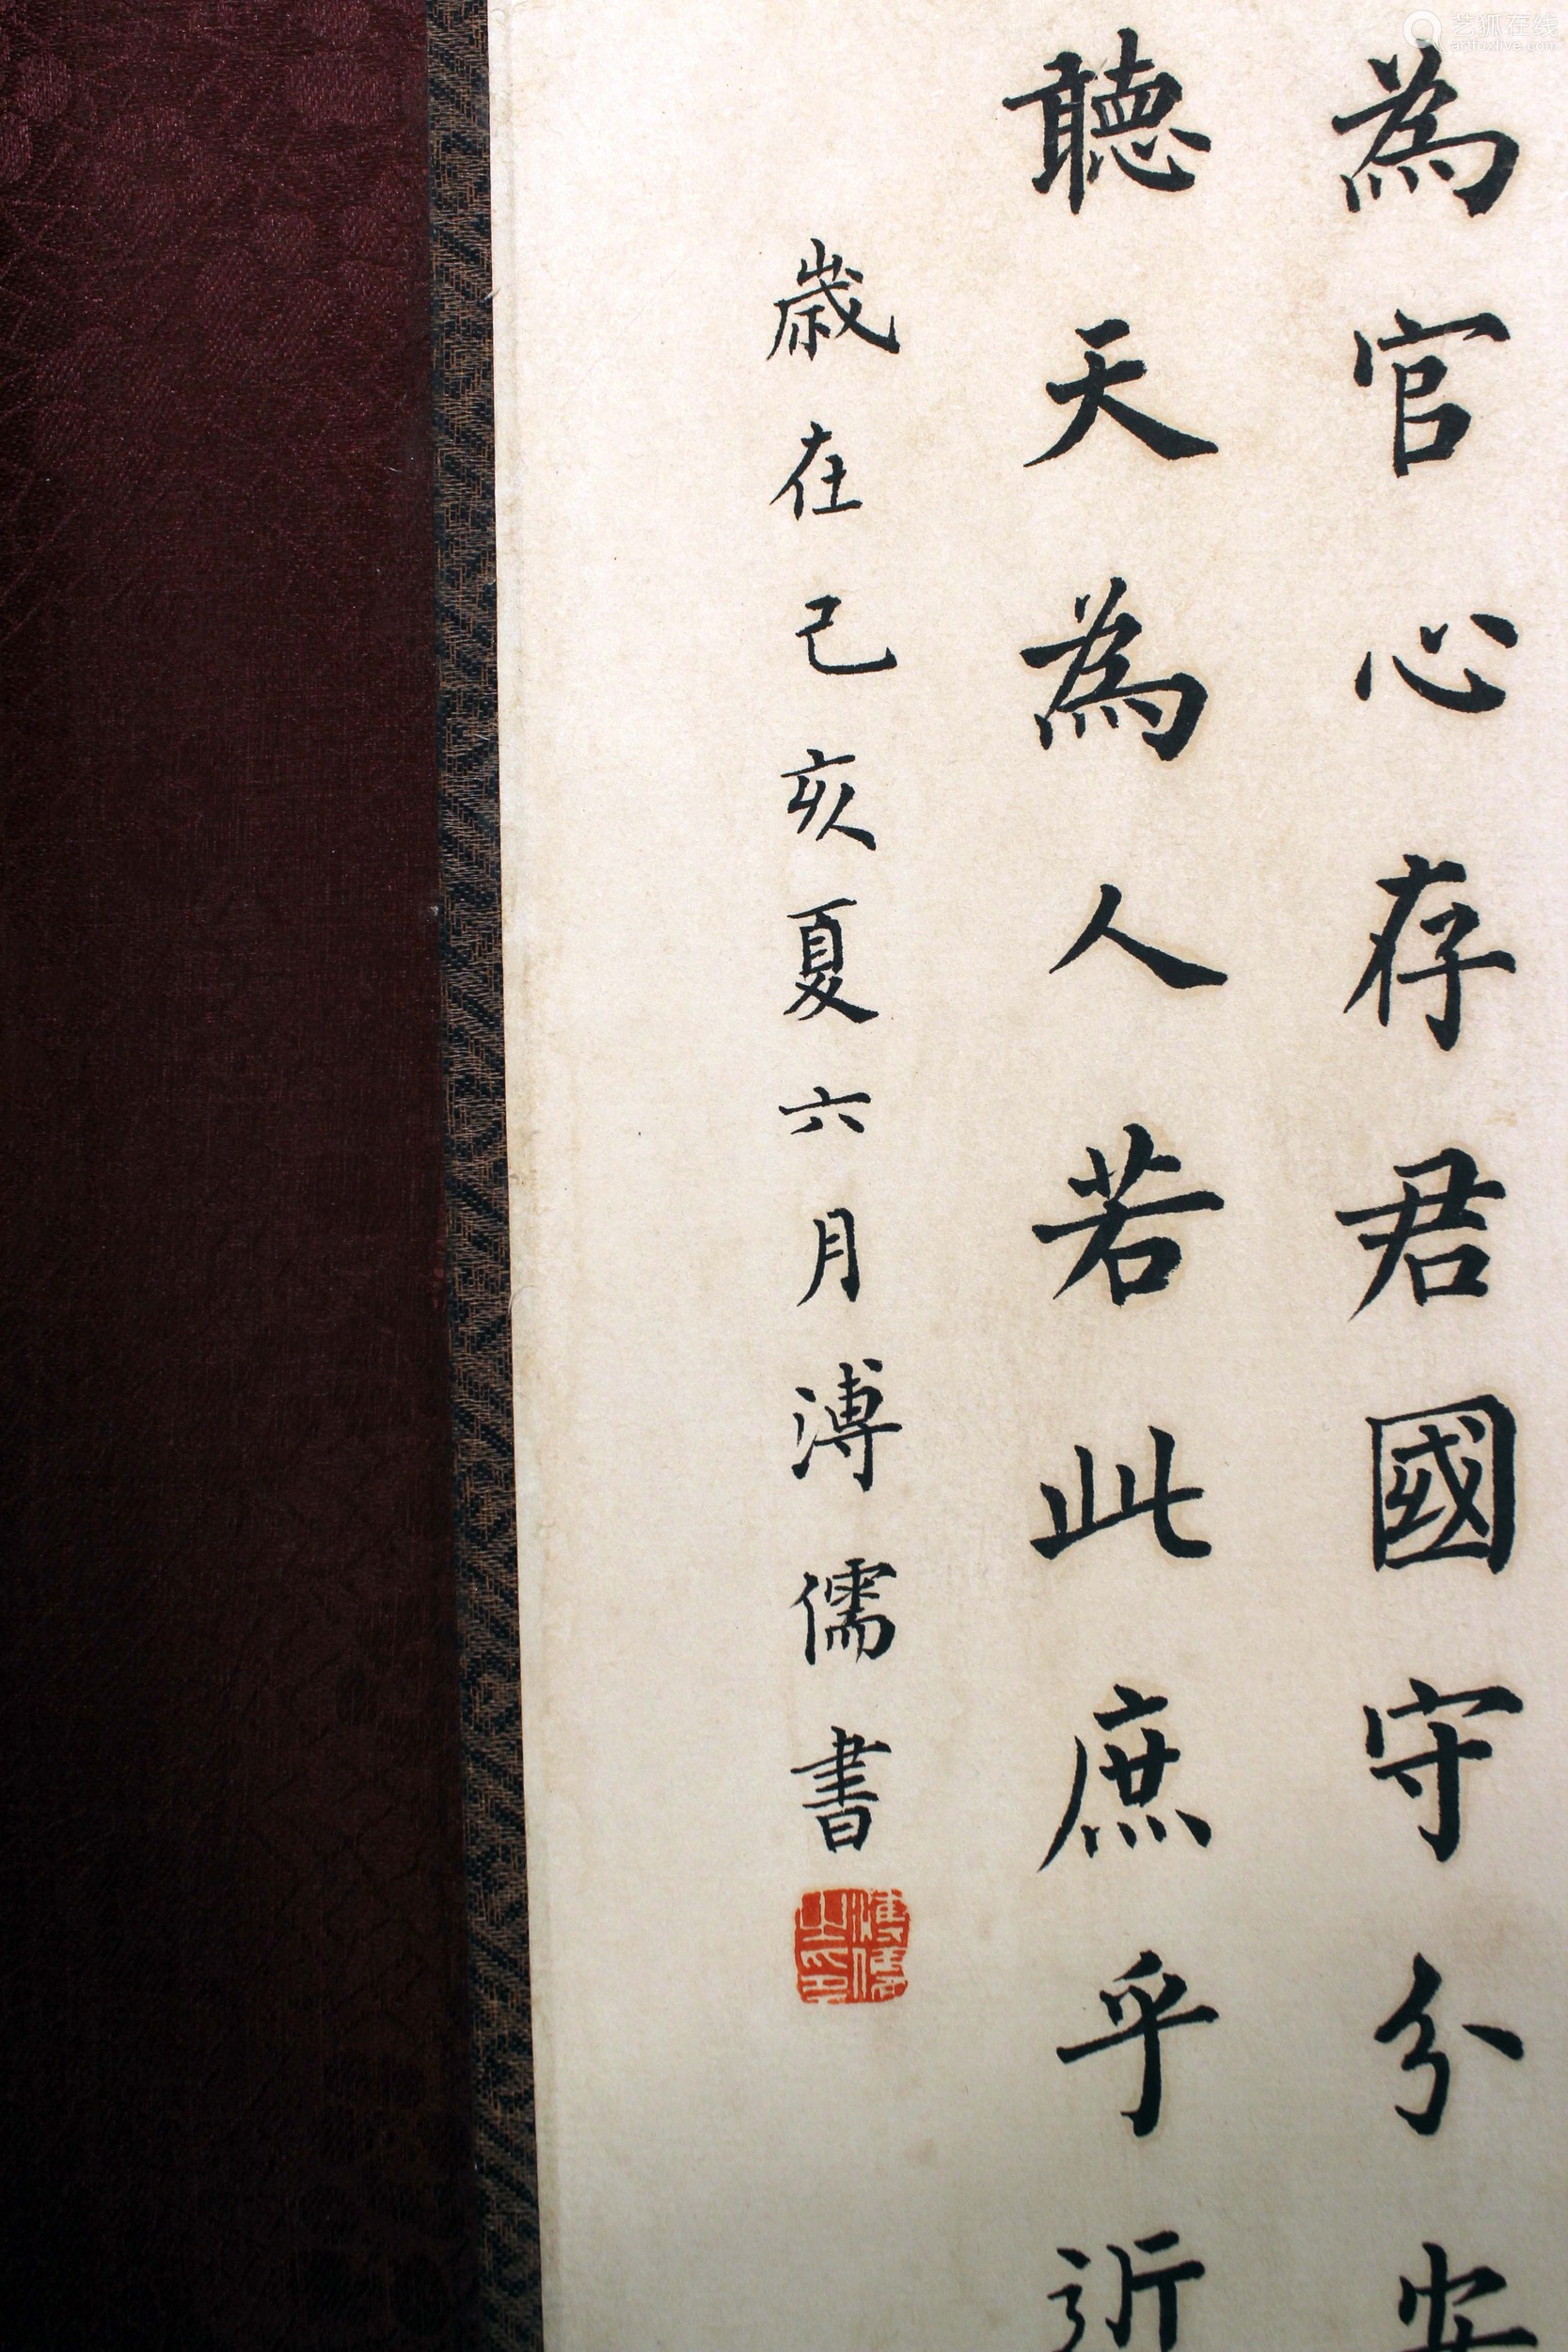 為官心存君國守分安
聽天為人若此庶乎近
歲在己亥夏六月溥儒書
溥儒之印
艺狐在线
artfoxlive.com